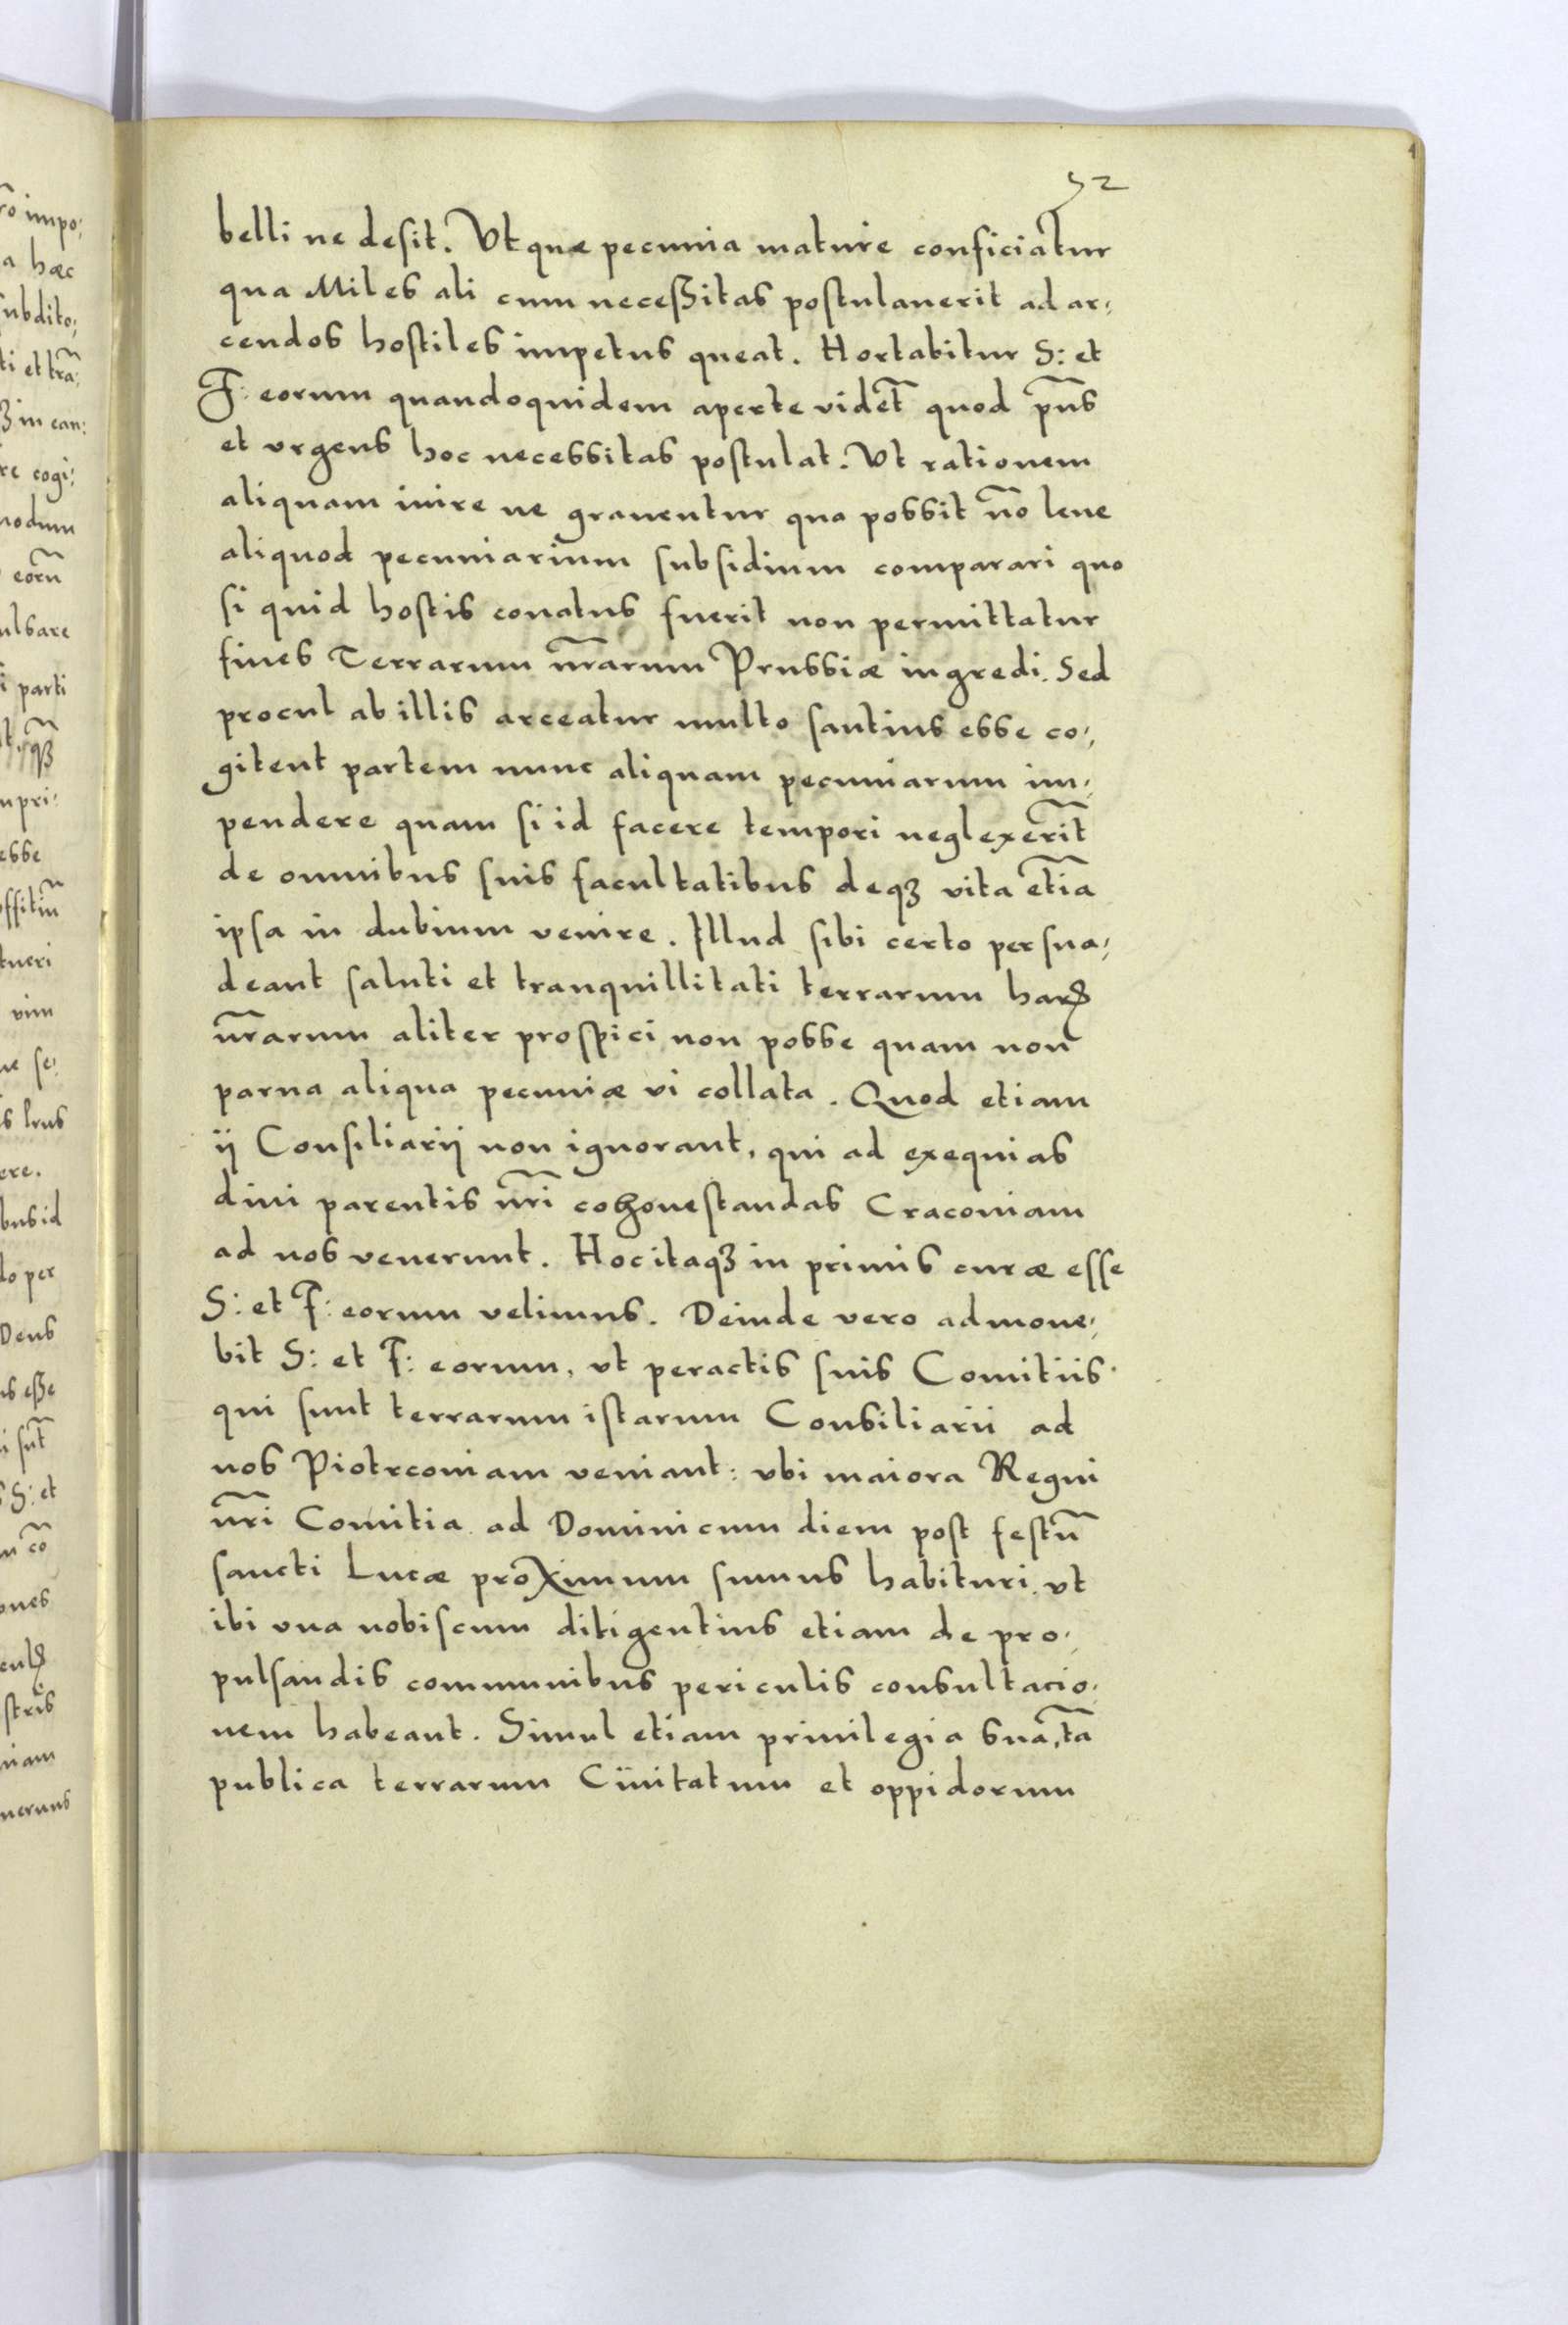 52
belli ne desit. Vt quæ pecunia mature conficiatur
qua Miles ali cum neceßitas postulauerit ad ar,
cendos hostiles impetus queat. Hortabitur S: et
F: eorum quandoquidem aperte videt̃ quod pñs
et vrgens hoc necessitas postulat. Vt rationem
aliquam inire ne grauentur qua possit ño leue
aliquod pecuniarium subsidium comparari quo
si quid hostis conatus fuerit non permittatur
fines Terrarum ñrarum Prussiæ ingredi. Sed
procul ab illis arceatur multo santius esse co,
gitent partem nunc aliquam pecuniarum im,
pendere quam si id facere tempori neglexerĩt
de omnibus suis facultatibus deqꝫ vita etiã
ipsa in dubium venire. Illud sibi certo persua,
deant saluti et tranquillitati terrarum harꝝ
ñrarum aliter prospici non posse quam non
parua aliqua pecuniæ vi collata. Quod etiam
ij Consiliarij non ignorant, qui ad exequias
diui parentis ñri cohonestandas Cracouiam
ad nos venerunt. Hoc itaqꝫ in primis curæ esse
S: et F: eorum velimus. Deinde vero admone,
bit S: et F: eorum, vt peractis suis Comitiis
qui sunt terrarum istarum Consiliarii ad
nos Piotrcouiam veniant: vbi maiora Regni
ñri Comitia ad Dominicum diem post festũ
sancti Lucæ proximum sumus habituri, vt
ibi vna nobiscum diligentius etiam de pro,
pulsandis communibus periculis consultacio,
nem habeant. Simul etiam priuilegia sua, tã
publica terrarum Ciuitatum et oppidorum
ro impo,
a hæc
subdito,
ti et trã,
ꝫ in eam:
re cogi,
modum
eorũ
ulsare
i parti
npri:
esse
tueri
vim
ne se,
ere.
busid
do per
Deus
us eße
i sũt
S: et
m cõ
ones
stris
niam